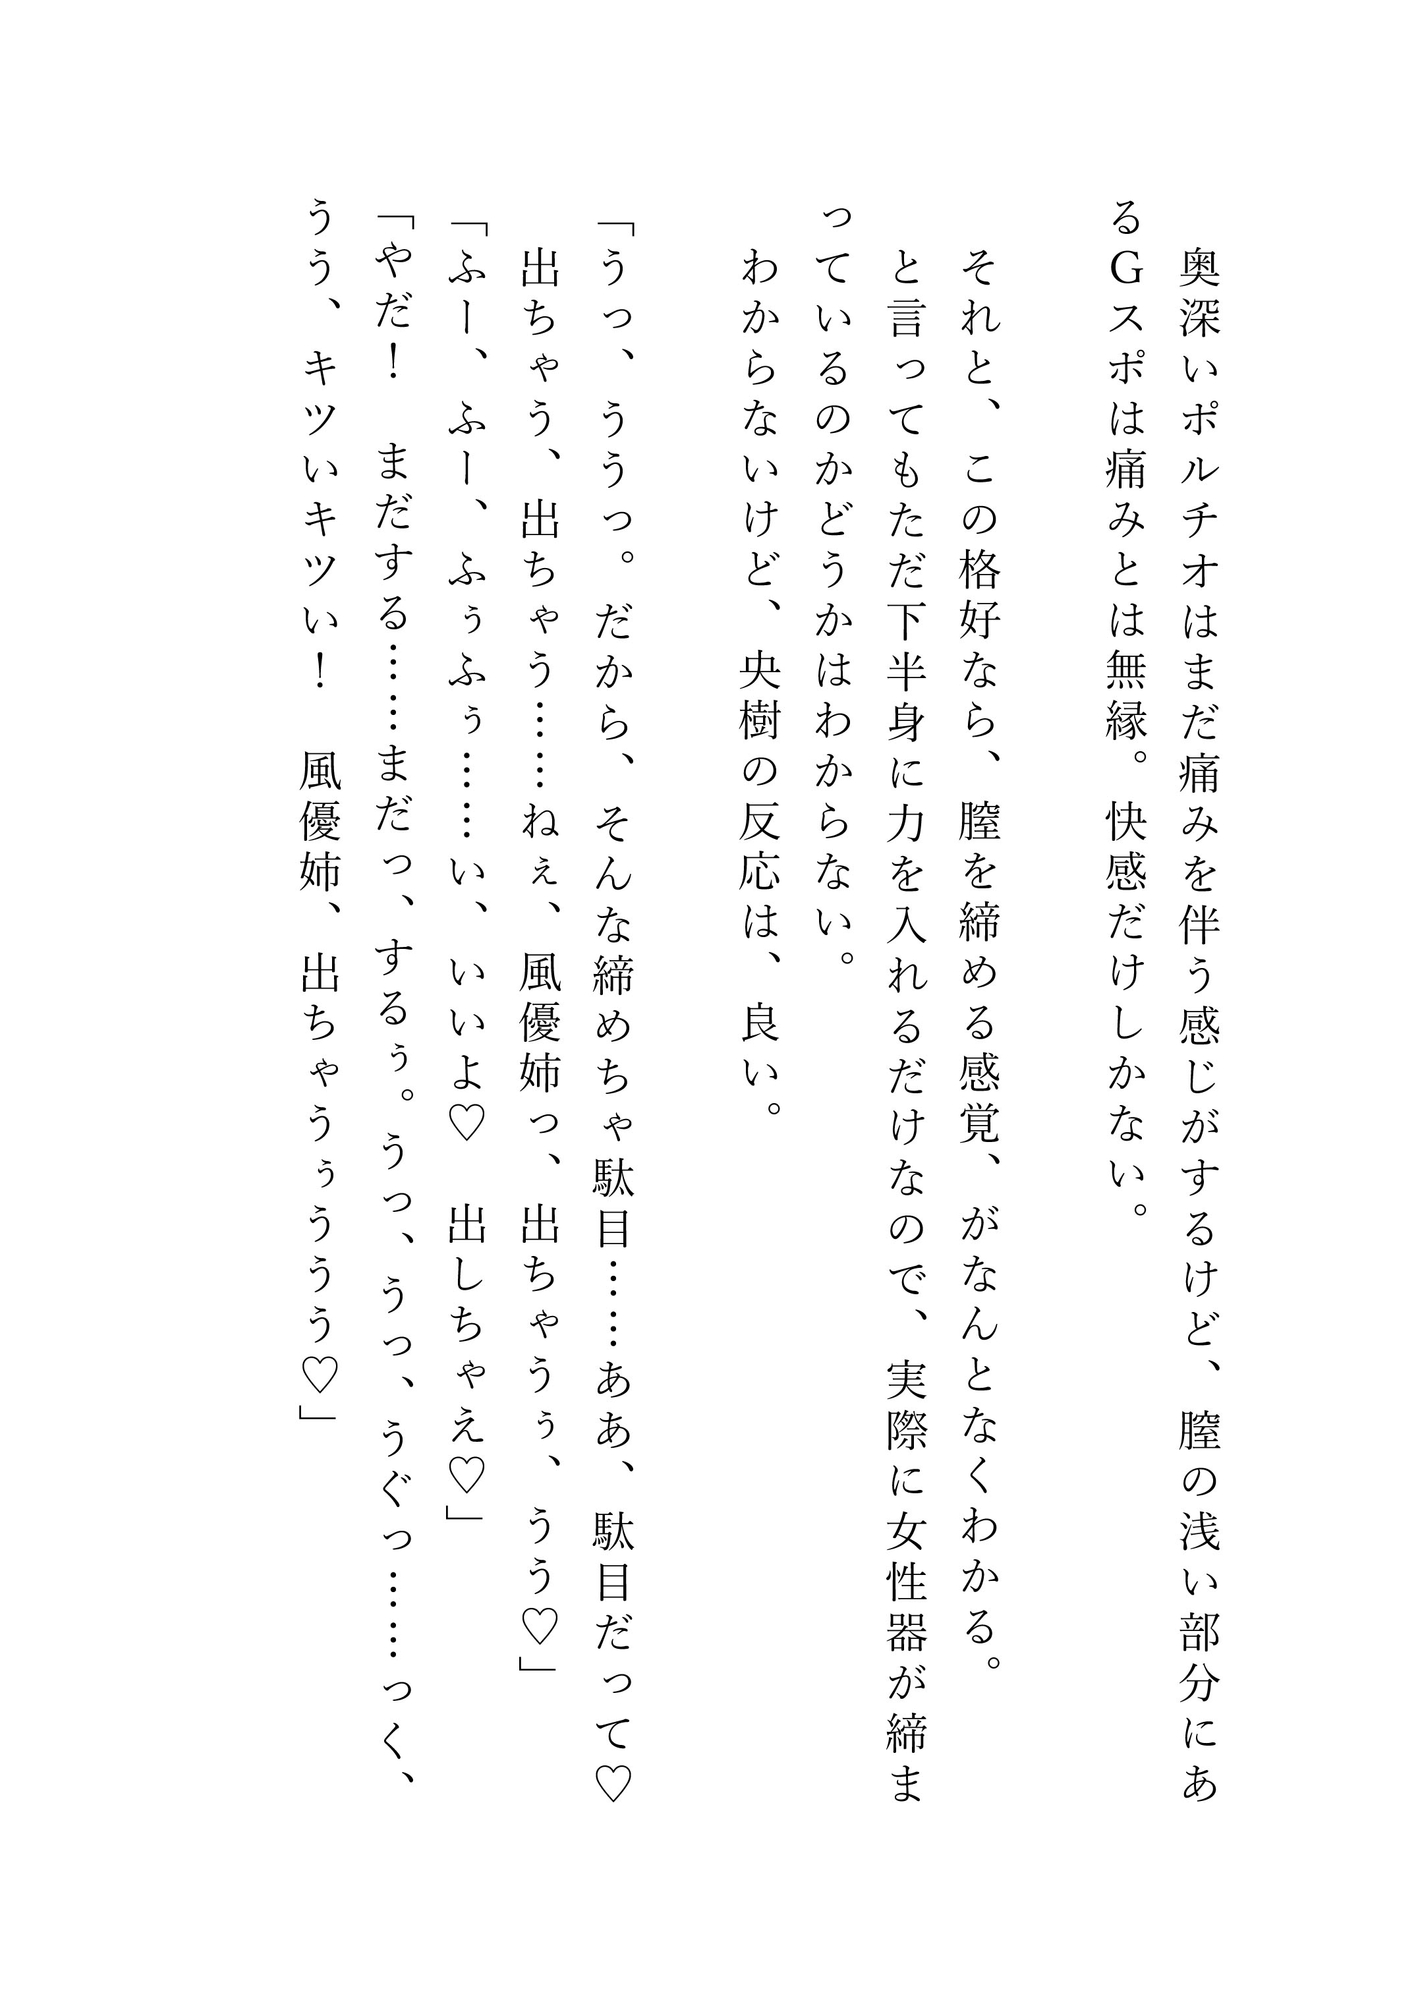 奥深いポルチオはまだ痛みを伴う感じがするけど、膣の浅い部分にあ
るＧスポは痛みとは無縁。快感だけしかない。
それと、この格好なら、膣を締める感覚、がなんとなくわかる。
と言ってもただ下半身に力を入れるだけなので、実際に女性器が締ま
っているのかどうかはわからない。
わからないけど、央樹の反応は、良い。
「うっ、ううっ。だから、そんな締めちゃ駄目……ああ、駄目だって♡
出ちゃう、出ちゃう……ねぇ、風優姉っ、出ちゃうぅ、うう♡」
「ふー、ふー、ふぅふぅ……い、いいよ♡　出しちゃえ♡」
「やだ！　まだする……まだっ、するぅ。うっ、うっ、うぐっ……っく、
うう、キツいキツい！　風優姉、出ちゃうぅううう♡」